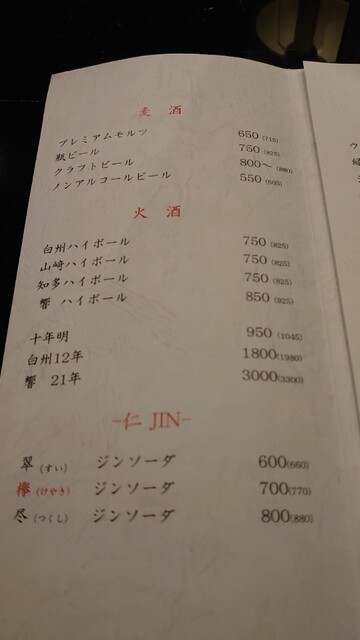 麦 酒
プレミアムモルツ 650 (715)
瓶ビール 750 (825)
クラフトビール 800〜 (880)
ノンアルコールビール 550 (605)
火 酒
白州ハイボール 750 (825)
山崎ハイボール 750 (825)
知多ハイボール 750 (825)
響 ハイボール 850 (925)
十年明 950 (1045)
白州12年 1800(1980)
響 21年 3000(3300)
-仁 JIN-
翠(すい) ジンソーダ 600(660)
欅(けやき) ジンソーダ 700(770)
尽(つくし) ジンソーダ 800(880)